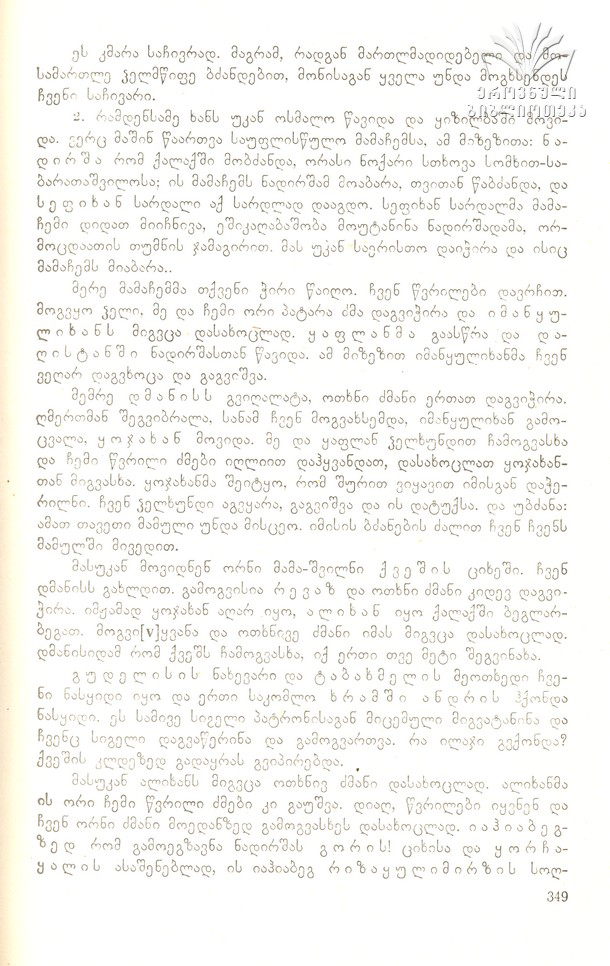 ეს კმარა საჩივრად. მაგრამ, რადგან მართლმადიდებელი და მო-
სამართლე ჴელმწიფე ბძანდებით, მონისაგან ყველა უნდა მოგხსენდეს
ჩვენი საჩივარი.
ეროვნული
ბიბლიოთეკა
2. რამდენსამე ხანს უკან ოსმალო წავიდა და ყიზილბაში მოვი-
და. ვერც მაშინ წაართვა საუფლისწულო მამაჩემსა, ამ მიზეზითა: ნა-
დირშა რომ ქალაქში მობძანდა, ორასი ნოქარი სთხოვა სომხით-სა-
ბარათაშვილოსა; ის მამაჩემს ნადირშამ მოაბარა, თვითან წაბძანდა, და
სეფიხან სარდალი აქ სარდლად დააგდო. სეფიხან სარდალმა მამა-
ჩემი დიდათ მიიჩნივა, ეშიკაღაბაშობა მოუტანინა ნადირშადამა, ორ-
მოცდაათის თუმნის ჯამაგირით. მას უკან საერისთო დაიჭირა და ისიც
მამაჩემს მიაბარა..
მერე მამაჩემმა თქვენი ჭირი წაიღო. ჩვენ წვრილები დავრჩით.
მოგვყო ჴელი, მე და ჩემი ორი პატარა ძმა დაგვიჭირა და იმანყუ-
ლიხანს მიგვცა დასახოცლად. ყაფლანმა გაასწრა და და-
ღისტანში ნადირშასთან წავიდა. ამ მიზეზით იმანყულიხანმა ჩვენ
ვეღარ დაგვხოცა და გაგვიშვა.
მემრე დმანისს გვიღალატა, ოთხნი ძმანი ერთათ დაგვიჭირა.
ღმერთმან შეგვიბრალა, სანამ ჩვენ მოგვახსემდა, იმანყულიხან გამო-
ცვალა, ყოჯახან მოვიდა. მე და ყაფლან ჴელხუნდით ჩამოგვასხა
და ჩემი წვრილი ძმები იღლიით დაჰყვანდათ, დასახოცლათ ყოჯახან-
თან მიგვასხა. ყოჯახანმა შეიტყო, რომ შურით ვიყავით იმისგან დაჭე-
რილნი. ჩვენ ჴელხუნდი აგვყარა, გაგვიშვა და ის დატუქსა. და უბძანა:
ამათ თავეთი მამული უნდა მისცეო. იმისის ბძანების ძალით ჩვენ ჩვენს
მამულში მივედით.
მასუკან მოვიდნენ ორნი მამა-შვილნი ქვეშის ციხეში. ჩვენ
დმანისს გახლდით. გამოგვისია რევაზ და ოთხნი ძმანი კიდევ დაგვი-
ჭირა. იმჟამად ყოჯახან აღარ იყო, ალიხან იყო ქალაქში ბეგლარ-
ბეგათ. მოგვი[ვ]ყვანა და ოთხნივე ძმანი იმას მიგვცა დასახოცლად.
დმანისიდამ რომ ქვეშს ჩამოგვასხა, იქ ერთი თვე მეტი შეგვინახა.
გუდელისის ნახევარი და ტაბახმელის მეოთხედი ჩვე-
ნი ნასყიდი იყო და ერთი საკომლო ხრამში ანდრის ჰქონდა
ნასყიდი. ეს სამივე სიგელი პატრონისაგან მიცემული მიგვატანინა და
ჩვენც სიგელი დაგვაწერინა და გამოგვართვა. რა ილაჯი გექონდა?
ქვეშის კლდეზედ გადაყრას გვიპირებდა.
მასუკან ალიხანს მიგვცა ოთხნივ ძმანი დასახოცლად. ალიხანმა
ის ორი ჩემი წვრილი ძმები კი გაუშვა. დიაღ, წვრილები იყვნენ და
ჩვენ ორნი ძმანი მოედანზედ გამოგვასხეს დასახოცლად. იაჰიაბეგ-
ზედ რომ გამოეგზავნა ნადირშას გორის! ციხისა და ყორჩა-
ყალის ასაშენებლად, ის იაჰიაბეგ რიზაყულიმირზის სოლ-
349